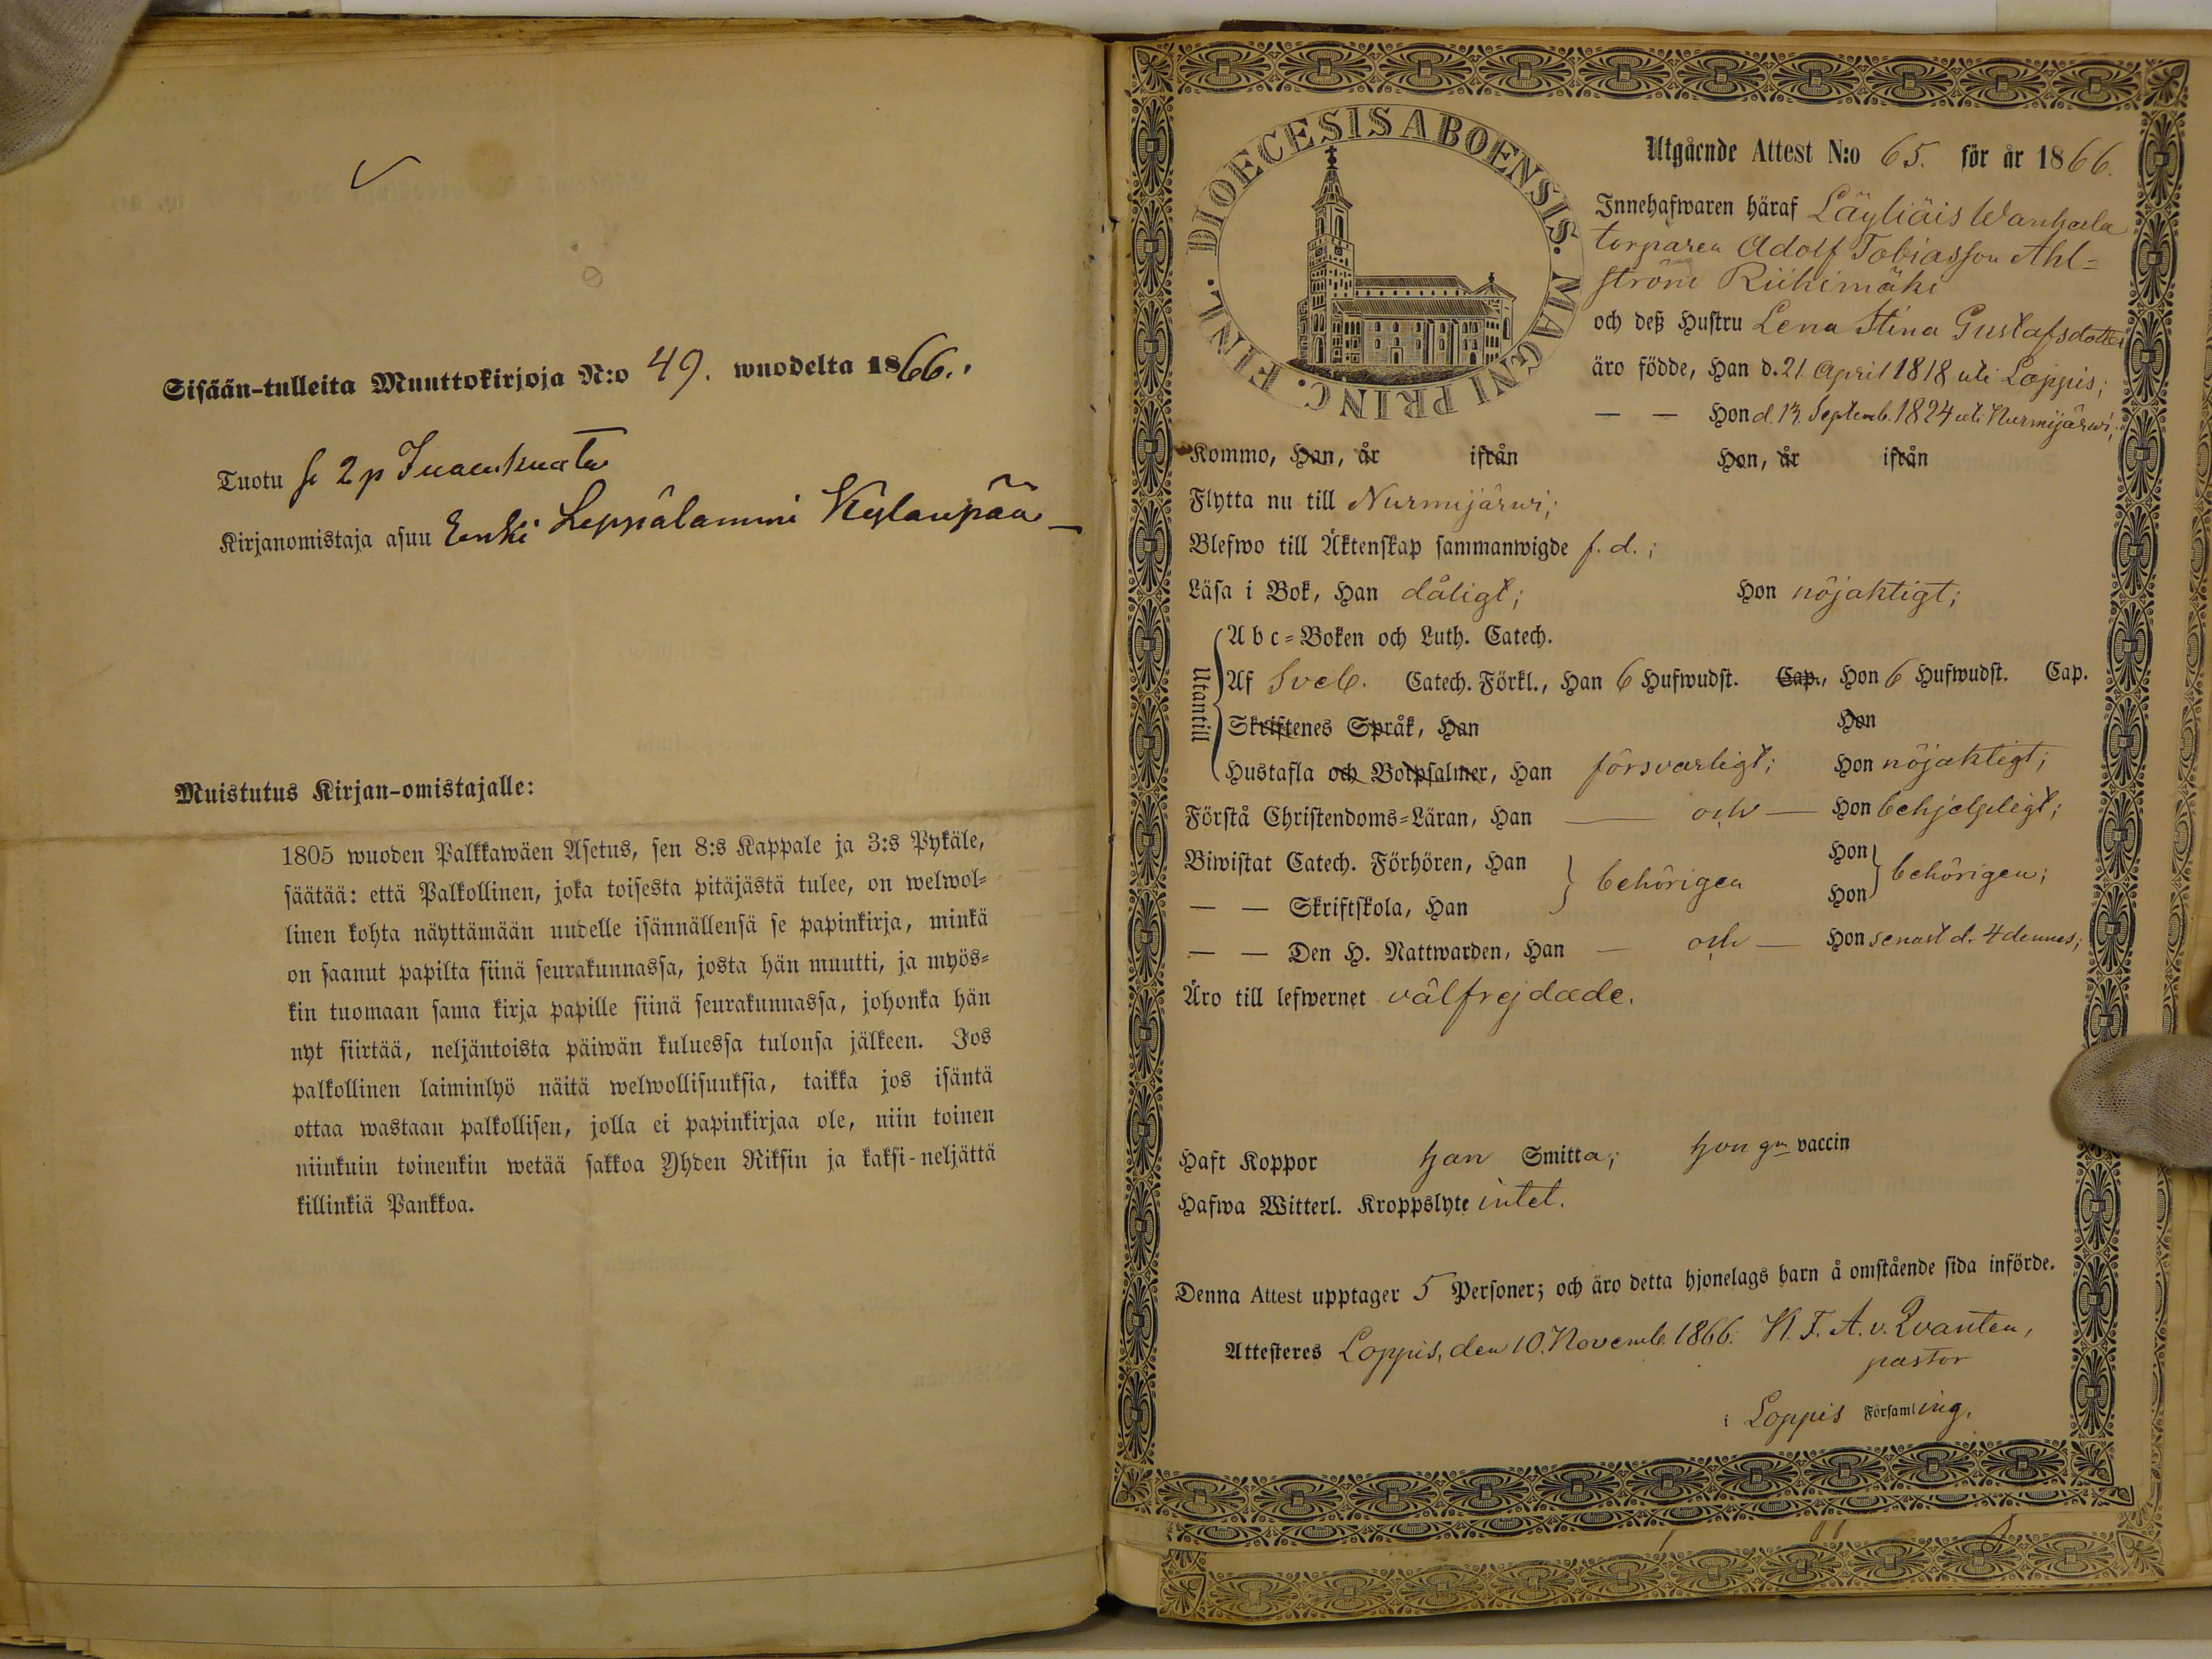 Sisään-tulleita Muuttokirjoja N:o 49. wuodelta 1866.
Tuotu se 2 p
Kirjanomistaja asuu Leppälammi Kylänpää
Muistutus Kirjan-omistajalle:
1805 wuoden Palkkawäen Asetus, sen 8:s Kappale ja 3:s Pykäle,
säätää: että Palkollinen, joka toisesta pitäjästä tulee, on welwol-
linen kohta näyttämään uudelle isännällensä se papinkirja, minkä
on saanut papilta siinä seurakunnassa, josta hän muutti, ja myös-
kin tuomaan sama kirja papille siinä seurakunnassa, johonka hän
nyt siirtää, neljäntoista päiwän kuluessa tulonsa jälkeen. Jos
palkollinen laiminlyö näitä welwollisuuksia, taikka jos isäntä
ottaa wastaan palkollisen, jolla ei papinkirjaa ole, niin toinen
niinkuin toinenkin wetää sakkoa Yhden Riksin ja kaksi-neljättä
killinkiä Pankkoa.
DIOECESIS ABOENSIS. MAGNI PRINC. FINL.
Utgående Attest N:o 65. för år 1866.
Innehafwaren häraf Läyliäis Wanhala
torparen Adolf Tobiasson Ahl-
ström Riihimäki
och deß Hustru Lena Stina Gustafsdotter
äro födde, Han d. 21 April 1818 uti Loppis;
— — Hon d. 13 Septemb. 1824 uti Nurmijärwi;
Kommo, Han, år ifrån Hon, år ifrån
Flytta nu till Nurmijärwi;
Blefwo till Äktenskap sammanwigde f. d.;
Läsa i Bok, Han dåligt; Hon nöjaktigt;
Utantill
A b c-Boken och Luth. Catech.
Af Sveb. Catech. Förkl., Han 6 Hufwudst. Cap., Hon 6 Hufwudst. Cap.
Skriftenes Språk, Han Hon
Hustafla och Botpsalmer, Han försvarligt; Hon nöjaktigt;
Förstå Christendoms-Läran, Han — och — Hon behjelpligt;
Biwistat Catech. Förhören, Han behörigen Hon behörigen;
— — Skriftskola, Han Hon
— — Den H. Nattwarden, Han — och — Hon senast d. 4 dennes;
Äro till lefwernet välfrejdade.
Haft Koppor han Smitta; hon gm vaccin
Hafwa Witterl. Kroppslyte intet.
Denna Attest upptager 5 Personer; och äro detta hjonelags barn å omstående sida införde.
Attesteres Loppis, den 10. Novemb. 1866. K. F. A. v. Qvanten,
pastor
i Loppis Församling.